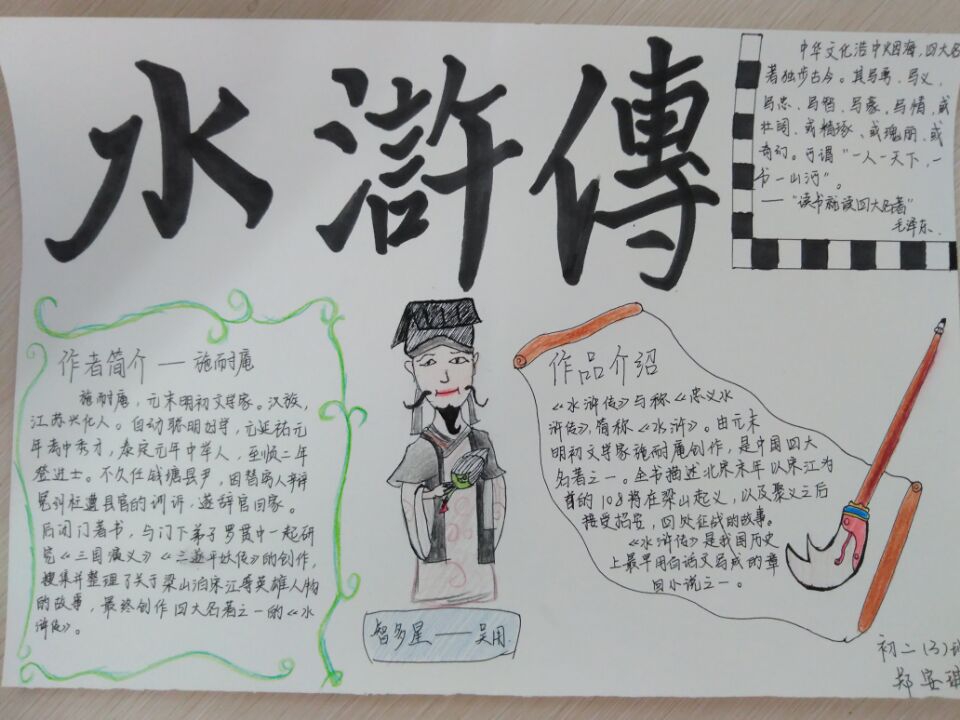 水滸傳
中华文化浩中如海,四大名
著独步古今。其写事、写义、
写忠、写智、写豪、写情,或
壮阔、或精琢、或瑰丽、或
奇幻。可谓“一人一天下,一
书一山河”。
——“读书就读四大名著”
毛泽东.
作者简介——施耐庵
施耐庵,元末明初文学家。汉族,
江苏兴化人。自幼聪明好学,元延祐元
年考中秀才,泰定元年中举人,至顺二年
登进士。不久任钱塘县尹,因替穷人辩
冤纠枉遭县官的训斥,遂辞官回家。
后闭门著书,与门下弟子罗贯中一起研
究《三国演义》《三遂平妖传》的创作,
搜集并整理了关于梁山泊宋江等英雄人物
的故事,最终创作四大名著之一的《水
浒传》。
智多星——吴用.
作品介绍
《水浒传》又称《忠义水
浒传》,简称《水浒》。由元末
明初文学家施耐庵创作,是中国四大
名著之一。全书描述北宋末年以宋江为
首的108将在梁山起义,以及聚义之后
接受招安,四处征战的故事。
《水浒传》是我国历史
上最早用白话文写成的章
回小说之一。
初二(3)班
郑安